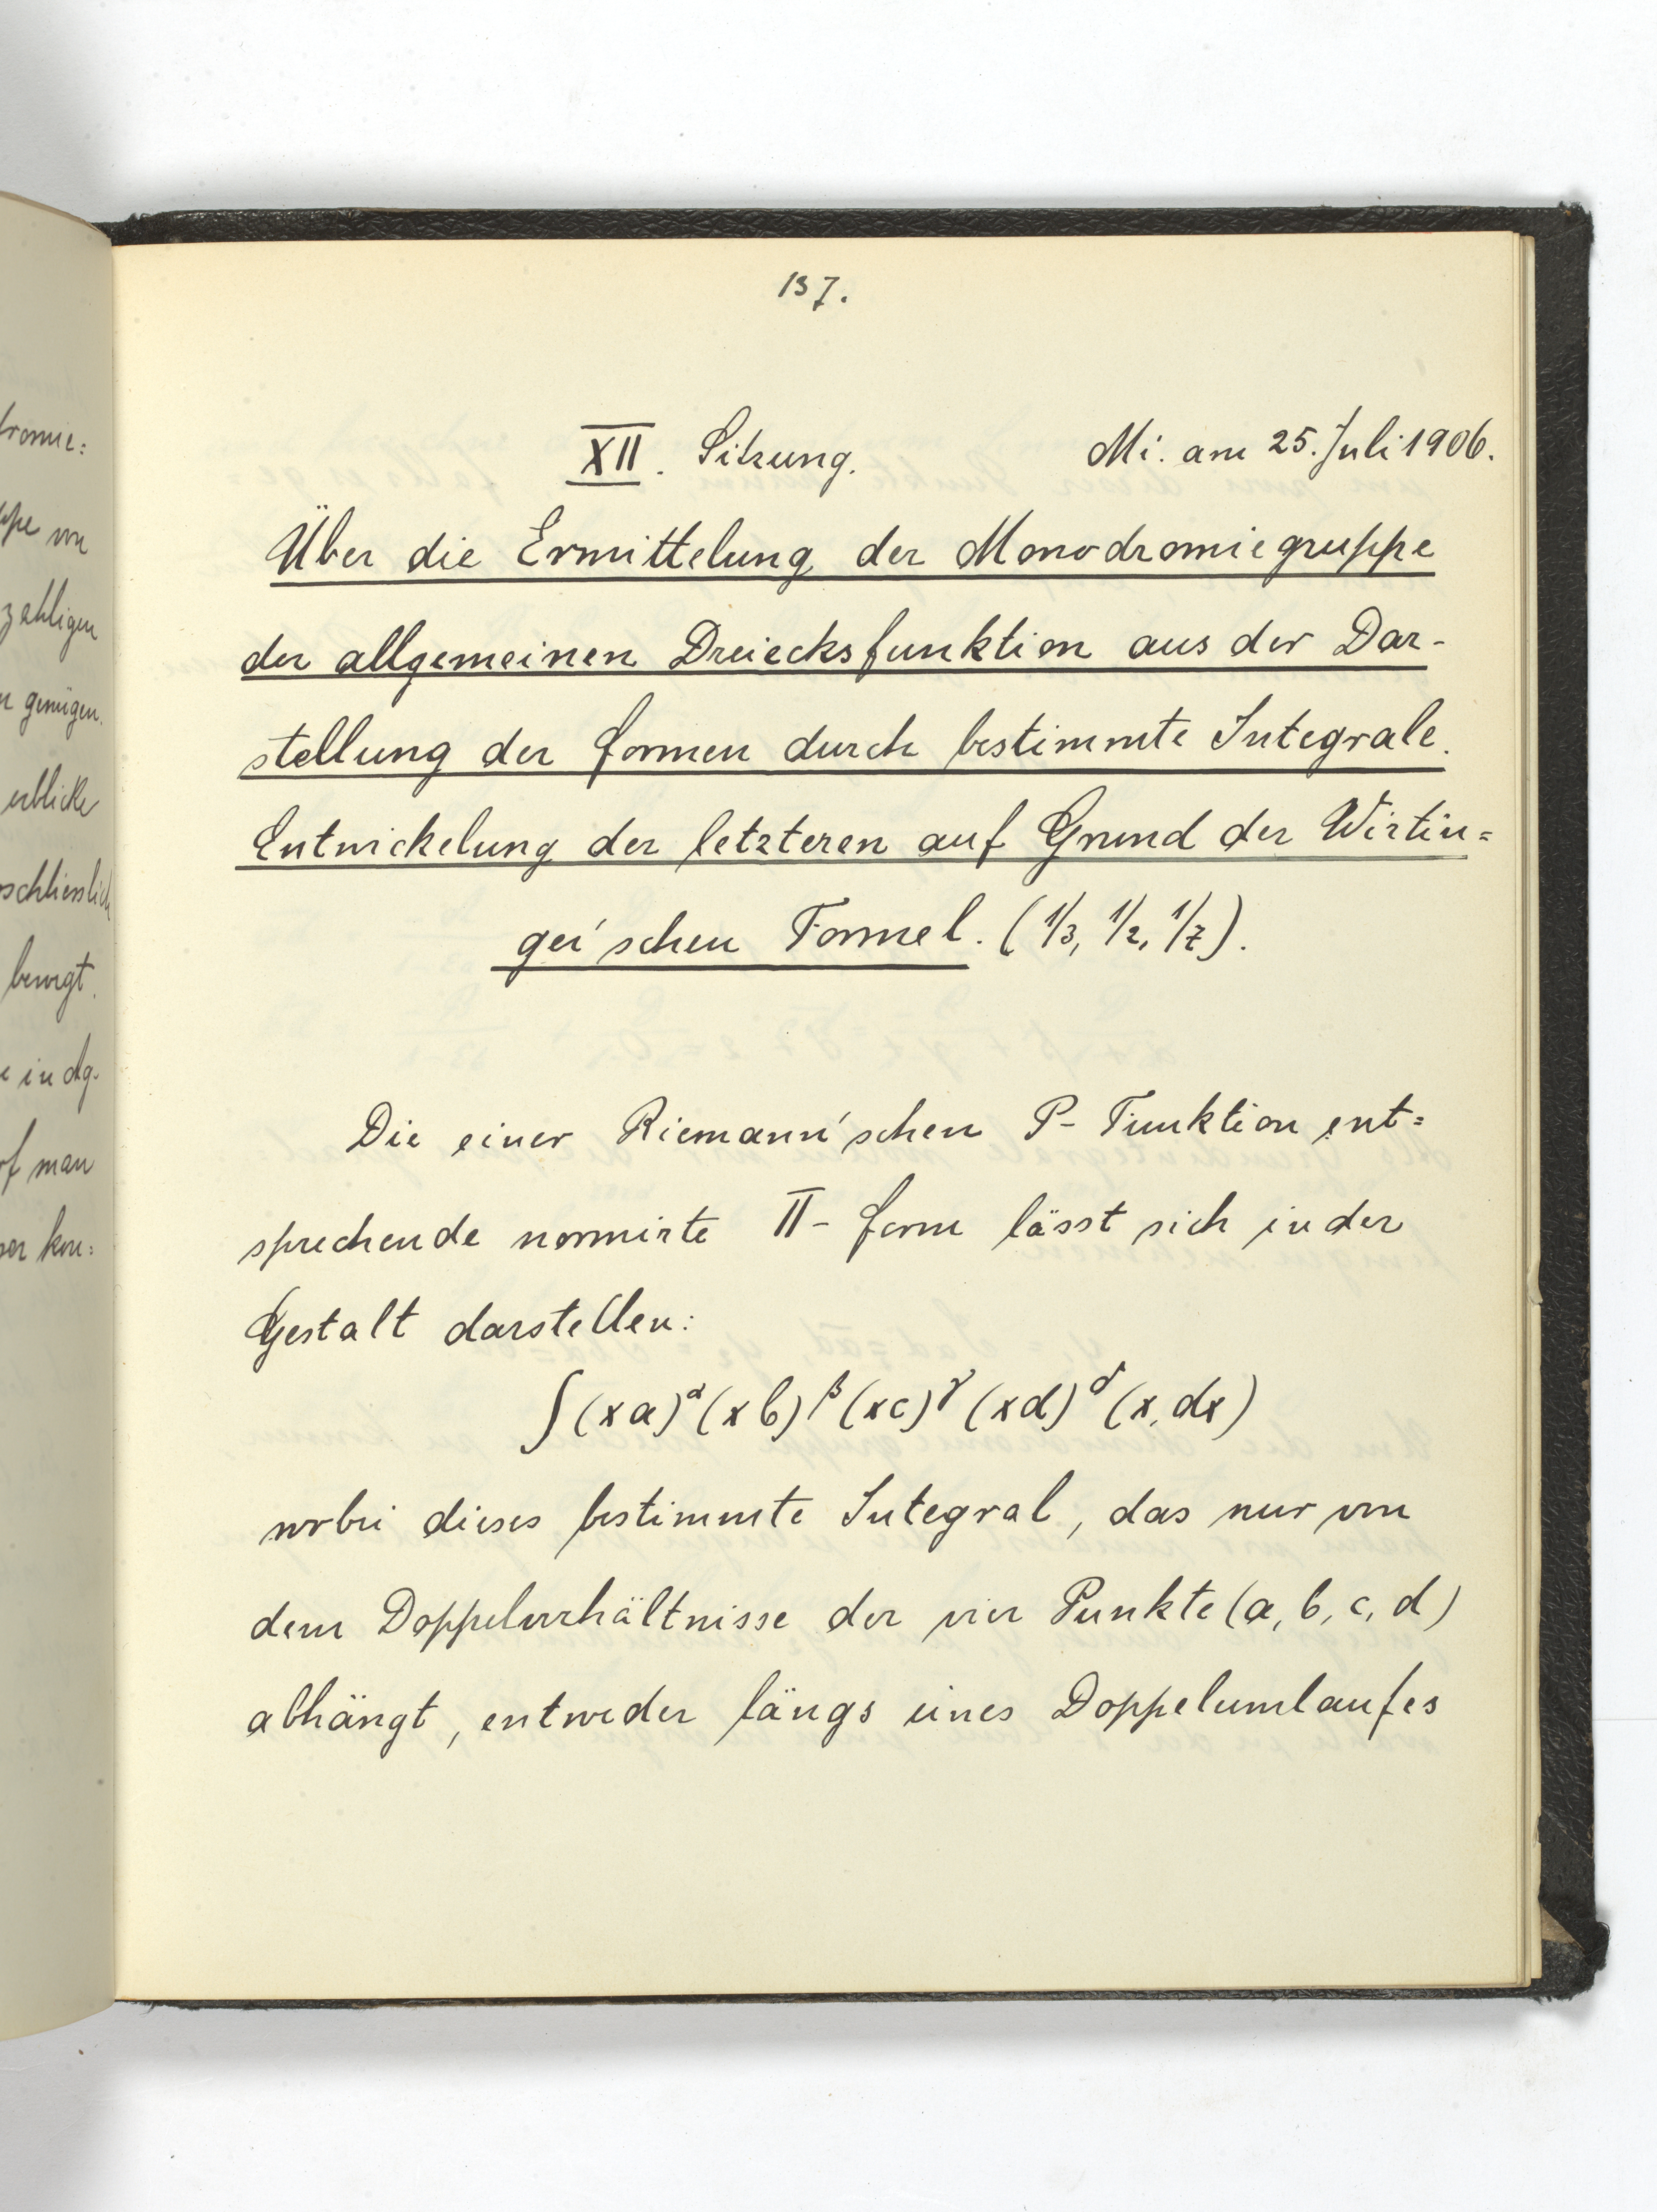 137.
XII. Sitzung. Mi. am 25. Juli 1906.
Über die Ermittelung der Monodromiegruppe
der allgemeinen Dreiecksfunktion aus der Dar-
stellung der Formen durch bestimmte Integrale.
Entwickelung der letzteren auf Grund der Wirtin=
ger'schen Formel. (1/3, 1/2, 1/7).
Die einer Riemann'schen P- Funktion ent=
sprechende normirte Π- Form lässt sich in der
Gestalt darstellen:
∫(xa)^α (xb)^β (xc)^γ (xd)^δ (x, dx)
wobei dieses bestimmte Integral, das nur von
dem Doppelverhältnisse der vier Punkte (a, b, c, d)
abhängt, entweder längs eines Doppelumlaufes
zahligen
genügen.
erblicke
bewegt.
man